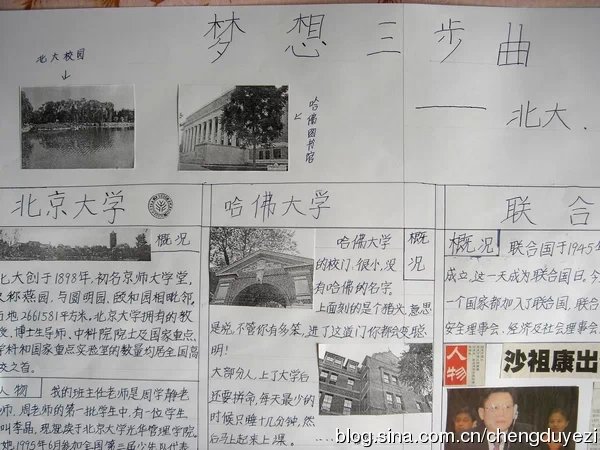 梦想三步曲
——北大、
北大校园
↓
哈佛图书馆
北京大学
概况
北大创于1898年,初名京师大学堂,
又称燕园,与圆明园、颐和园相毗邻,
占地2661581平方米。北京大学拥有的教
授、博士生导师、中科院院士及国家重点
学科和国家重点实验室的数量均居全国高
校之首。
人物 我的班主任老师是周学静老
师,周老师的第一批学生中,有一位学生
叫李晶,现就读于北京大学光华管理学院。
她1995年6月参加全国第三届少年队代表
哈佛大学
概况
哈佛大学
的校门,很小,没
有哈佛的名字,
上面刻的是个猪头,意思
是说,不管你有多笨,进了这道门你都会变聪
明!
大部分人,上了大学后
还要拼命,每天最少的
时候只睡十几分钟,然
后马上起来上课。
联合
概况 联合国于1945年
成立,这一天成为联合国日。今
一个国家都加入了联合国,联合
安全理事会、经济及社会理事会、
人物
沙祖康出
blog.sina.com.cn/chengduyezi